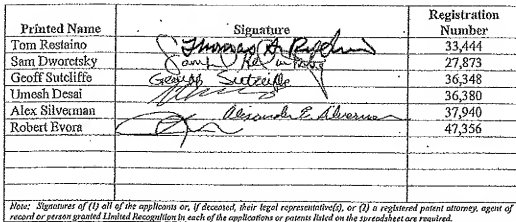 Printed Name Signature Registration Number
Tom Restaino Thomas G. Restaino 33,444
Sam Dworetsky Sam 27,873
Geoff Sutcliffe Geoff Sutcliffe 36,348
Umesh Desai 36,380
Alex Silverman Alexander E. Silverman 37,940
Robert Evora 47,356
Note: Signatures of (1) all of the applicants or, if deceased, their legal representative(s), or (2) a registered patent attorney, agent of
record or person granted Limited Recognition in each of the applications or patents listed on the spreadsheet are required.